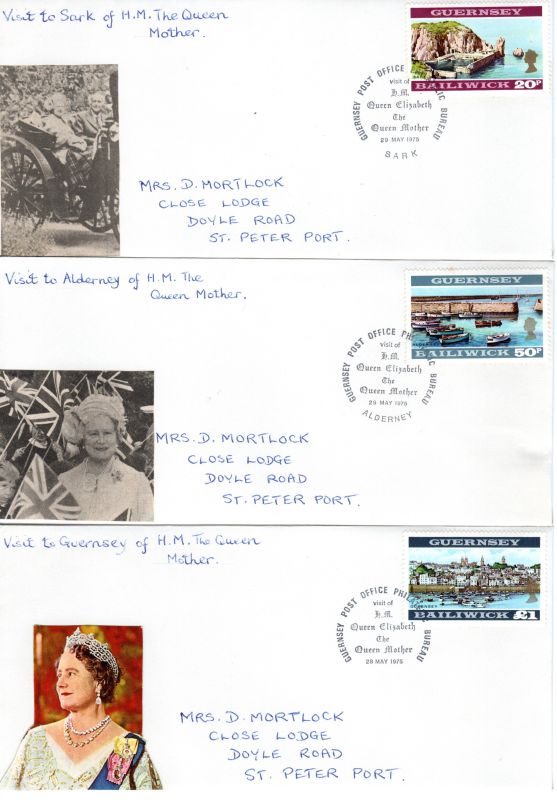 Visit to Sark of H.M. The Queen
Mother.
GUERNSEY
BAILIWICK 20P
GUERNSEY POST OFFICE PHILATELIC BUREAU
visit of
H.M.
Queen Elizabeth
The
Queen Mother
29 MAY 1975
SARK
MRS. D. MORTLOCK
CLOSE LODGE
DOYLE ROAD
ST. PETER PORT.
Visit to Alderney of H.M. The
Queen Mother.
GUERNSEY
ALDERNEY
BAILIWICK 50P
GUERNSEY POST OFFICE PHILATELIC BUREAU
visit of
H.M.
Queen Elizabeth
The
Queen Mother
29 MAY 1975
ALDERNEY
MRS. D. MORTLOCK
CLOSE LODGE
DOYLE ROAD
ST. PETER PORT.
Visit to Guernsey of H.M. The Queen
Mother.
GUERNSEY
GUERNSEY
BAILIWICK £1
GUERNSEY POST OFFICE PHILATELIC BUREAU
visit of
H.M.
Queen Elizabeth
The
Queen Mother
28 MAY 1975
MRS. D. MORTLOCK
CLOSE LODGE
DOYLE ROAD
ST. PETER PORT.